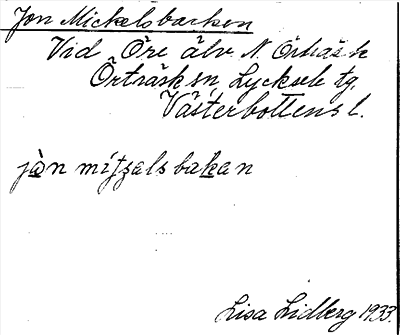 Jon Mickelsbacken
Vid Öre älv N. Örträsk
Örträsk sn, Lycksele tg.
Västerbottens l.
jòn mitʒalsbakan
Lisa Lidberg 1933.